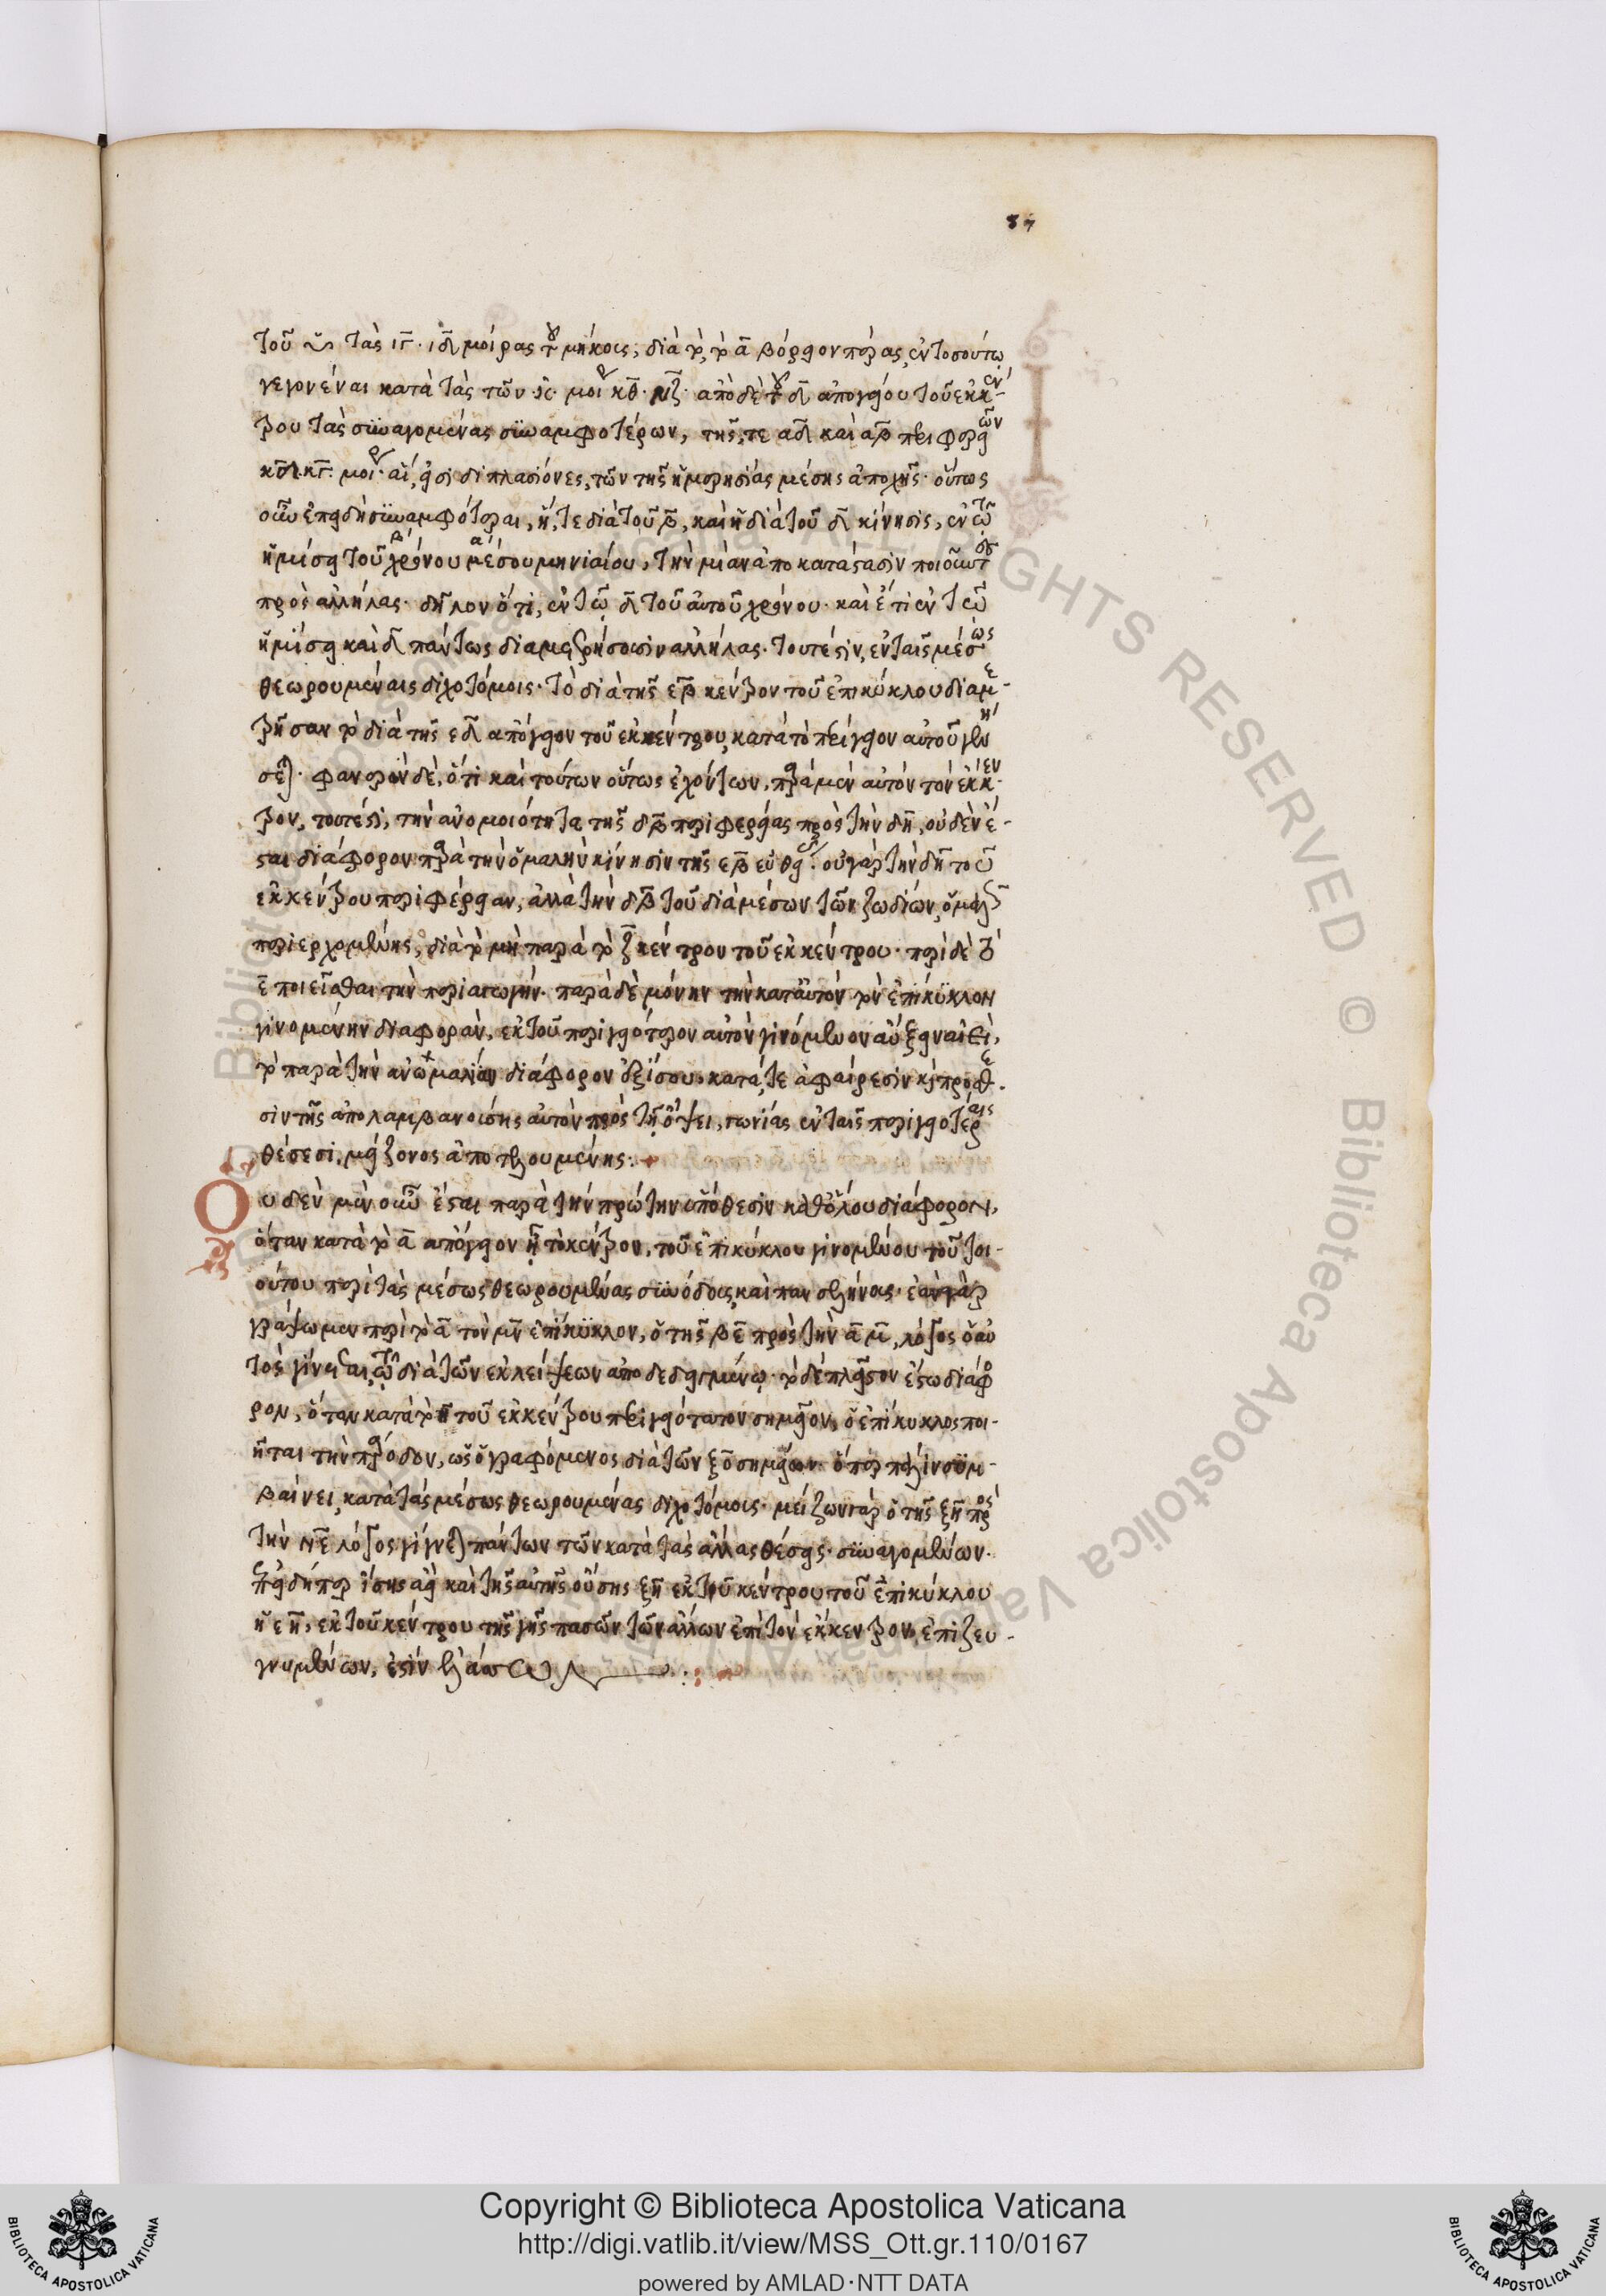 87
τοῦ τὰς ιγ· ιδ μοίρας τοῦ μήκους, διὰ τὸ, τὸ α βόρειον πέρας, ἐν τοσούτω
γεγονέναι κατὰ τὰς τῶν μοι κθ· ἀπὸ δὲ τοῦ δ ἀπογείου τοῦ ἐκκέν-
τρου τὰς συναγομένας συναμφοτέρων, τῆς τε αδ καὶ αβ περιφερειῶν
κδ κγ μοι· αἵ εἰσι διπλασίονες, τῶν τῆς ἡμερησίας μέσης ἀποχῆς· οὕτως
οὖν ἐπειδὴ συναμφότεραι, ἥ τε διὰ τοῦ β, καὶ ἡ διὰ τοῦ δ κίνησις, ἐν τῶ
ἡμίσει τοῦ χρόνου μέσου μηνιαίου, τὴν μίαν ἀποκατάστασιν ποιοῦντ
πρὸς ἀλλήλας· δῆλον ὅτι, ἐν τῶ δ τοῦ αὐτοῦ χρόνου· καὶ ἔτι ἐν τῶ
ἡμίσει καὶ δ πάντως διαμετρήσουσιν ἀλλήλας· τουτέστιν, ἐν ταῖς μέσως
θεωρουμέναις διχοτόμοις· τὸ διὰ τῆς εβ κέντρον τοῦ ἐπικύκλου διαμε-
τρῆσαν τὸ διὰ τῆς εδ ἀπόγειον τοῦ ἐκκέντρου, κατὰ τὸ περίγειον αὐτοῦ γενή
σεται· φανερὸν δὲ, ὅτι καὶ τούτων οὕτως ἐχόντων, παρὰ μὲν αὐτὸν τὸν ἔκκεν
τρον, τουτέστι, τὴν ἀνομοιότητα τῆς δβ περιφερείας πρὸς τὴν δη, οὐδὲν ἔ-
σται διάφορον παρὰ τὴν ὁμαλὴν κίνησιν τῆς εβ εὐθεί· οὐ γὰρ τὴν δη τοῦ
ἐκκέντρου περιφέρειαν, ἀλλὰ τὴν δβ τοῦ διὰ μέσων τῶν ζωδίων, ὁμαλῶς
περιερχομένης, διὰ τὸ μὴ παρὰ τὸ ζ κέντρον τοῦ ἐκκέντρου· περὶ δὲ τὸ
ε ποιεῖσθαι τὴν περιαγωγήν· παρὰ δὲ μόνην τὴν κατ' αὐτὸν τὸν ἐπίκυκλον
γινομένην διαφοράν, ἐκ τοῦ περιγειότερον αὐτὸν γινόμενον αὔξειν αἰεὶ,
τὸ παρὰ τὴν ἀνωμαλίαν διάφορον ἐξίσου κατά τε ἀφαίρεσιν καὶ πρόσθε-
σιν τῆς ἀπολαμβανούσης αὐτὸν πρὸς τῇ ὄψει, γωνίας ἐν ταῖς περιγειοτέραις
θέσεσι, μείζονος ἀποτελουμένης:
Οὐδὲν μὲν οὖν ἔσται παρὰ τὴν πρώτην ὑπόθεσιν καθόλου διάφορον,
ὅταν κατὰ τὸ α ἀπόγειον ᾖ τὸ κέντρον, τοῦ ἐπικύκλου γινομένου τοῦ τοι-
ούτου περὶ τὰς μέσως θεωρουμένας συνόδους, καὶ πανσελήνους· ἐὰν γὰρ
γράψωμεν περὶ τὸ α τὸν μν ἐπίκυκλον, ὁ τῆς βε πρὸς τὴν αμ, λόγος ὁ αὐ
τὸς γίνεται, τῶ διὰ τῶν ἐκλείψεων ἀποδεδειγμένω· τὸ δὲ πλεῖστον ἔστω διάφο
ρον, ὅταν κατὰ τὸ η τοῦ ἐκκέντρου περιγειότατον σημεῖον, ὁ ἐπίκυκλος ποι-
ῆται τὴν πάροδον, ὡς ὁ γραφόμενος διὰ τῶν ξο σημείων· ὅπερ πάλιν συμ-
βαίνει, κατὰ τὰς μέσως θεωρουμένας διχοτόμοις· μείζων γὰρ ὁ τῆς ξη πρὸς
τὴν νε λόγος γίγνεται πάντων τῶν κατὰ τὰς ἄλλας θέσεις· συναγομένων·
ἐπειδήπερ ἴσης ἀεὶ καὶ τῆς αὐτῆς οὔσης ξη ἐκ τοῦ κέντρου τοῦ ἐπικύκλου
ἡ εη, ἐκ τοῦ κέντρου τῆς γῆς πασῶν τῶν ἄλλων ἐπὶ τὸν ἔκκεντρον, ἐπιζευ-
γνυμένων, ἐστὶν ἐλάσσων:
Copyright © Biblioteca Apostolica Vaticana
http://digi.vatlib.it/view/MSS_Ott.gr.110/0167
powered by AMLAD·NTT DATA